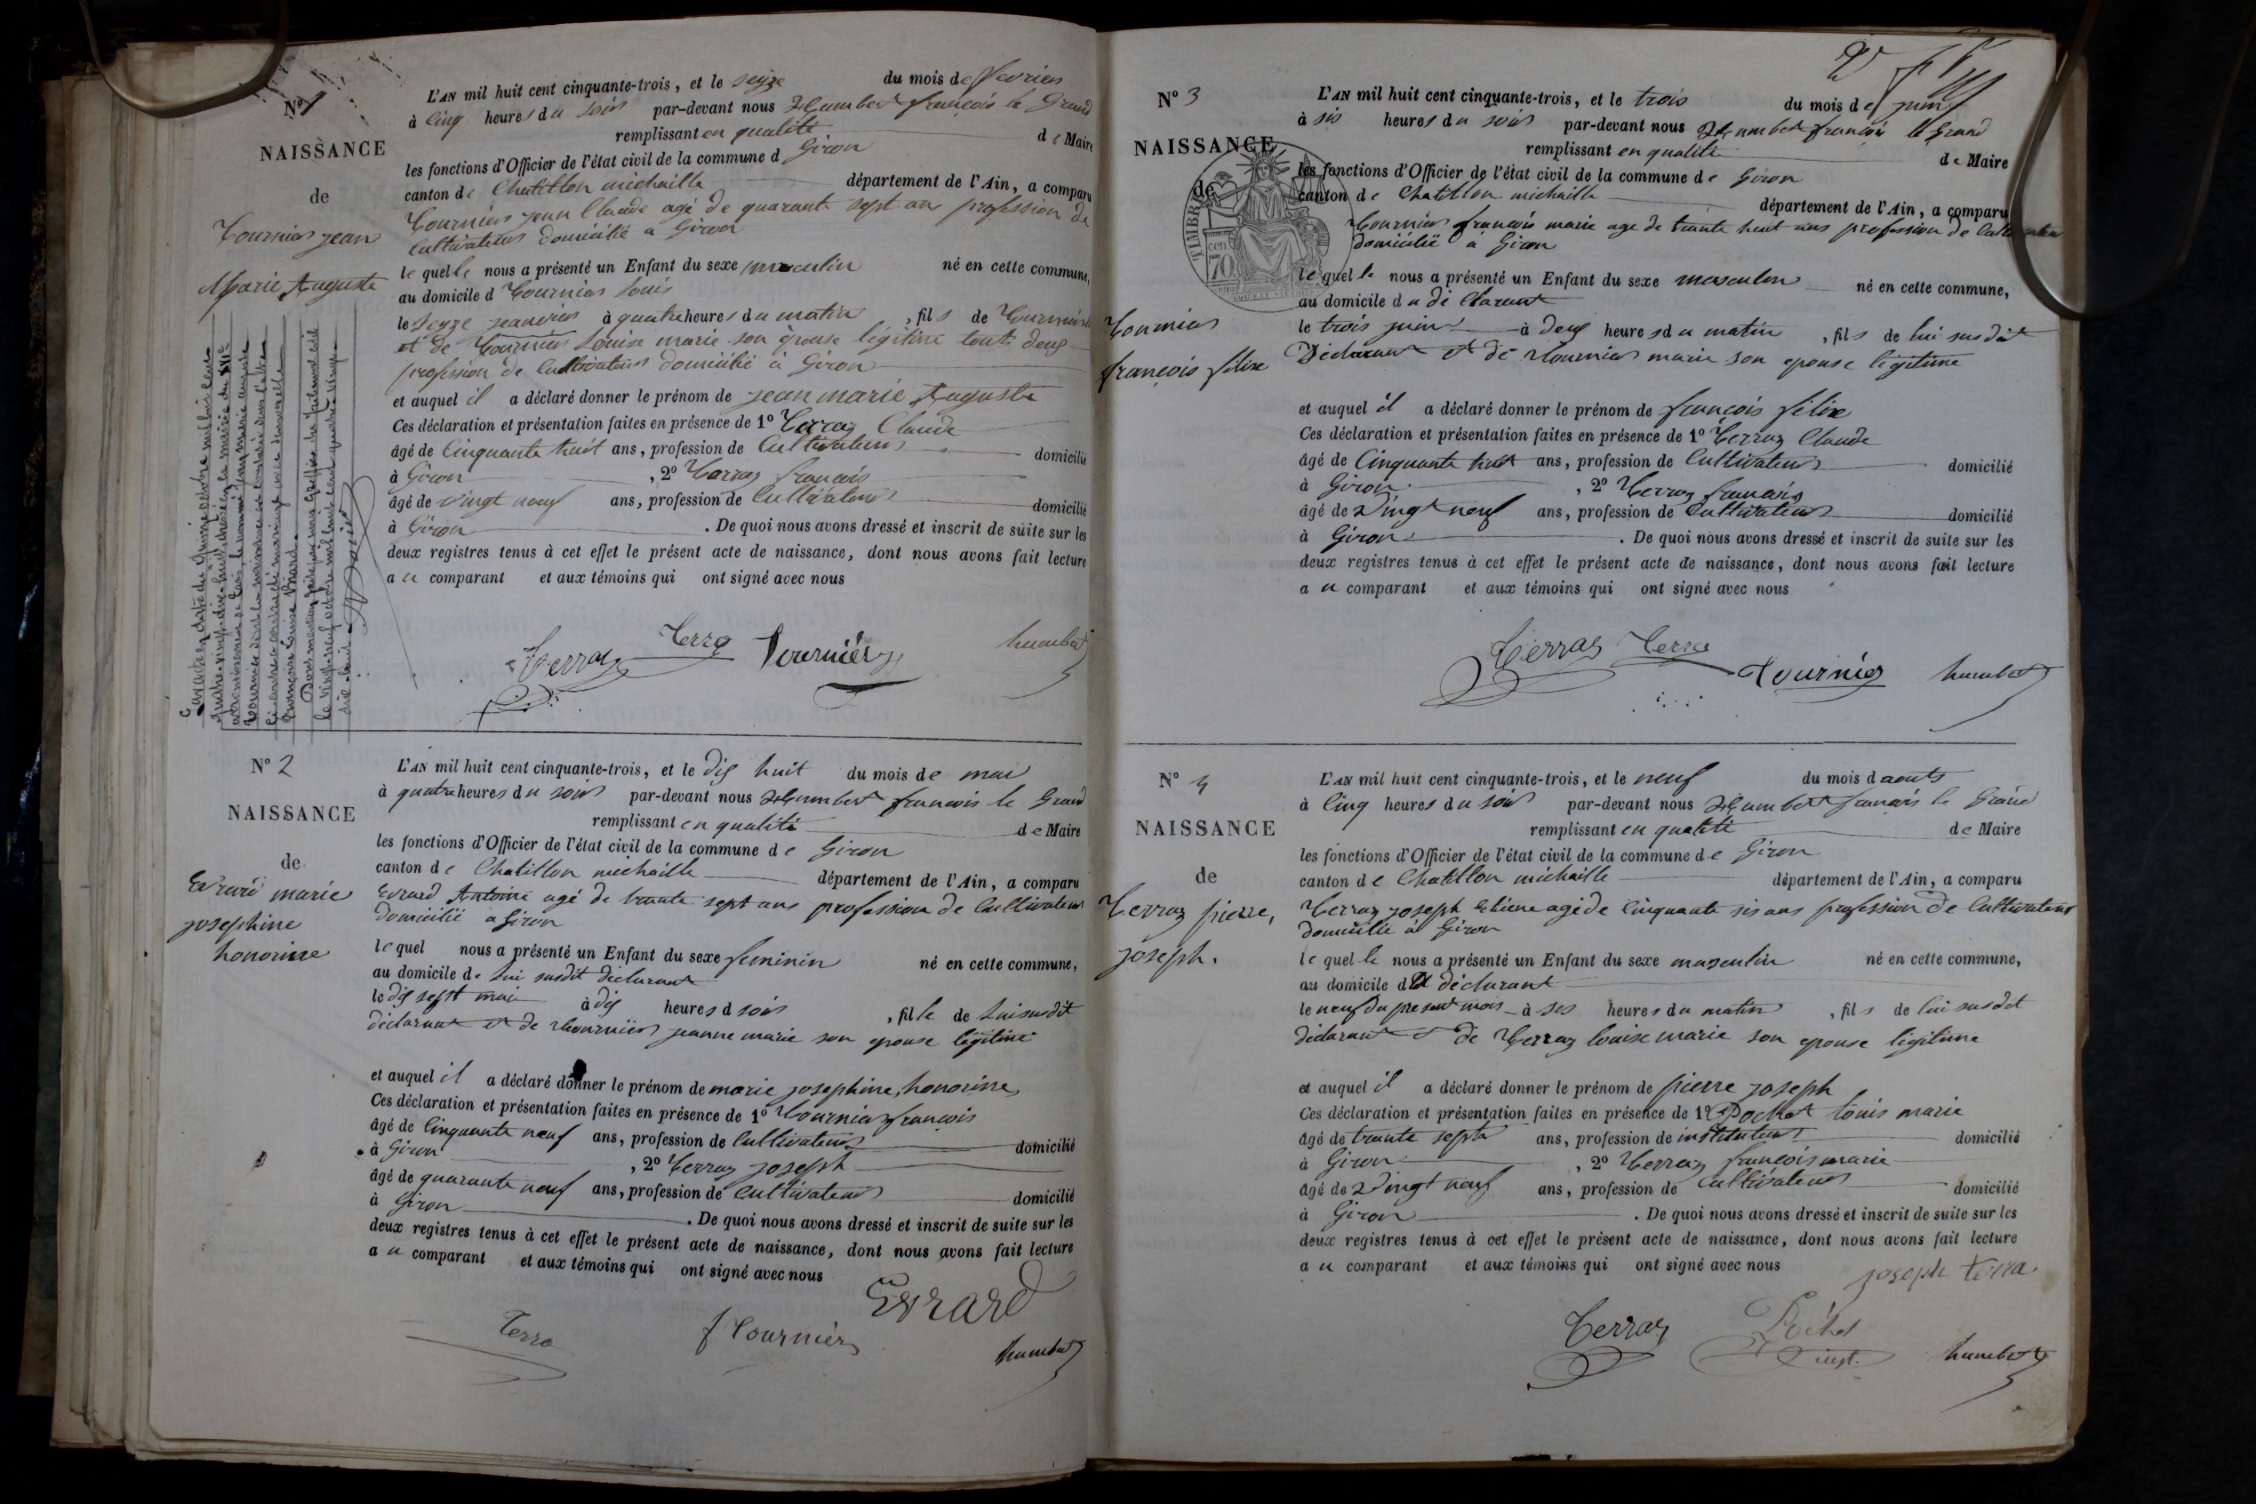 N° 1
NAISSANCE
de
Tournier jean
Marie Auguste
L'AN mil huit cent cinquante-trois, et le seize du mois de fevrier
à cinq heures du soir par-devant nous humbert françois le Grand
remplissant en qualité de Maire
les fonctions d'Officier de l'état civil de la commune d Giron
canton de Chatillon michaille département de l'Ain, a comparu
Tournier jean Claude agé de quarante sept an profession de
Cultivateur domicilié a Giron
le quel le nous a présenté un Enfant du sexe masculin né en cette commune,
au domicile d Tournier louis
le seize à quatre heures du matin, fils de Tournier
et de Tournier Louise marie son épouse légitime tout deux
profession de Cultivateur domicilié à Giron
et auquel il a déclaré donner le prénom de jean marie Auguste
Ces déclaration et présentation faites en présence de 1° Terraz Claude
âgé de Cinquante huit ans, profession de Cultivateur domicilié
à Giron, 2° Terraz françois
âgé de vingt neuf ans, profession de Cultivateur domicilié
à Giron. De quoi nous avons dressé et inscrit de suite sur les
deux registres tenus à cet effet le présent acte de naissance, dont nous avons fait lecture
a u comparant et aux témoins qui ont signé avec nous
Terraz Terra Tournier humbert
N° 2
NAISSANCE
de
Evrard marie
josephine
honorine
L'AN mil huit cent cinquante-trois, et le dix huit du mois de mai
à quatre heures du soir par-devant nous humbert francois le Grand
remplissant en qualité de Maire
les fonctions d'Officier de l'état civil de la commune de Giron
canton de Chatillon michaille département de l'Ain, a comparu
Evrard Antoine agé de trante sept ans profession de Cultivateur
domicilié a Giron
le quel nous a présenté un Enfant du sexe feminin né en cette commune,
au domicile de lui susdit déclarant
le dix sept mai à dix heures d soir, fille de Lui susdit
déclarant et de Tournier jeanne marie son epouse légitime
et auquel il a déclaré donner le prénom de marie josephine, honorine
Ces déclaration et présentation faites en présence de 1° Tournier françois
âgé de Cinquante neuf ans, profession de Cultivateur domicilié
à Giron, 2° Terraz joseph
âgé de quarante neuf ans, profession de Cultivateur domicilié
à Giron. De quoi nous avons dressé et inscrit de suite sur les
deux registres tenus à cet effet le présent acte de naissance, dont nous avons fait lecture
a u comparant et aux témoins qui ont signé avec nous
Evrard
Terra f Tournier humbert
N° 3
NAISSANCE
de
TIMBRE
70
Tournier
françois félix
L'AN mil huit cent cinquante-trois, et le trois du mois de juin
à sis heures du soir par-devant nous humbert françois le Grand
remplissant en qualité de Maire
les fonctions d'Officier de l'état civil de la commune de Giron
canton de Chatillon michaille département de l'Ain, a comparu
Tournier françois marie age de trante huit ans profession de Cultivateur
domicilié a Giron
le quel le nous a présenté un Enfant du sexe masculin né en cette commune,
au domicile du déclarant
le trois juin à deux heures du matin, fils de lui susdit
Déclarant et de Tournier marie son epouse légitime
et auquel il a déclaré donner le prénom de françois félix
Ces déclaration et présentation faites en présence de 1° Terraz Claude
âgé de Cinquante huit ans, profession de Cultivateur domicilié
à Giron, 2° Terraz françois
âgé de Vingt neuf ans, profession de Cultivateur domicilié
à Giron. De quoi nous avons dressé et inscrit de suite sur les
deux registres tenus à cet effet le présent acte de naissance, dont nous avons fait lecture
a u comparant et aux témoins qui ont signé avec nous
Terraz Terra Tournier humbert
N° 4
NAISSANCE
de
Terraz pierre,
joseph.
L'AN mil huit cent cinquante-trois, et le neuf du mois d aouts
à Cinq heures du soir par-devant nous humbert françois le Grand
remplissant en qualité de Maire
les fonctions d'Officier de l'état civil de la commune de Giron
canton de Chatillon michaille département de l'Ain, a comparu
Terraz joseph Etiene agé de Cinquante sis ans profession de Cultivateur
domicilié à Giron
le quel le nous a présenté un Enfant du sexe masculin né en cette commune,
au domicile du déclarant
le neuf du present mois à sis heures du matin, fils de lui susdit
déclarant et de Terraz louise marie son epouse légitime
et auquel il a déclaré donner le prénom de pierre joseph
Ces déclaration et présentation faites en présence de 1° Pochet louis marie
âgé de trante sept ans, profession de instituteur domicilié
à Giron, 2° Terraz françois marie
âgé de Vingt neuf ans, profession de Cultivateur domicilié
à Giron. De quoi nous avons dressé et inscrit de suite sur les
deux registres tenus à cet effet le présent acte de naissance, dont nous avons fait lecture
a u comparant et aux témoins qui ont signé avec nous
joseph terra
Terraz Pochet humbert
inst.